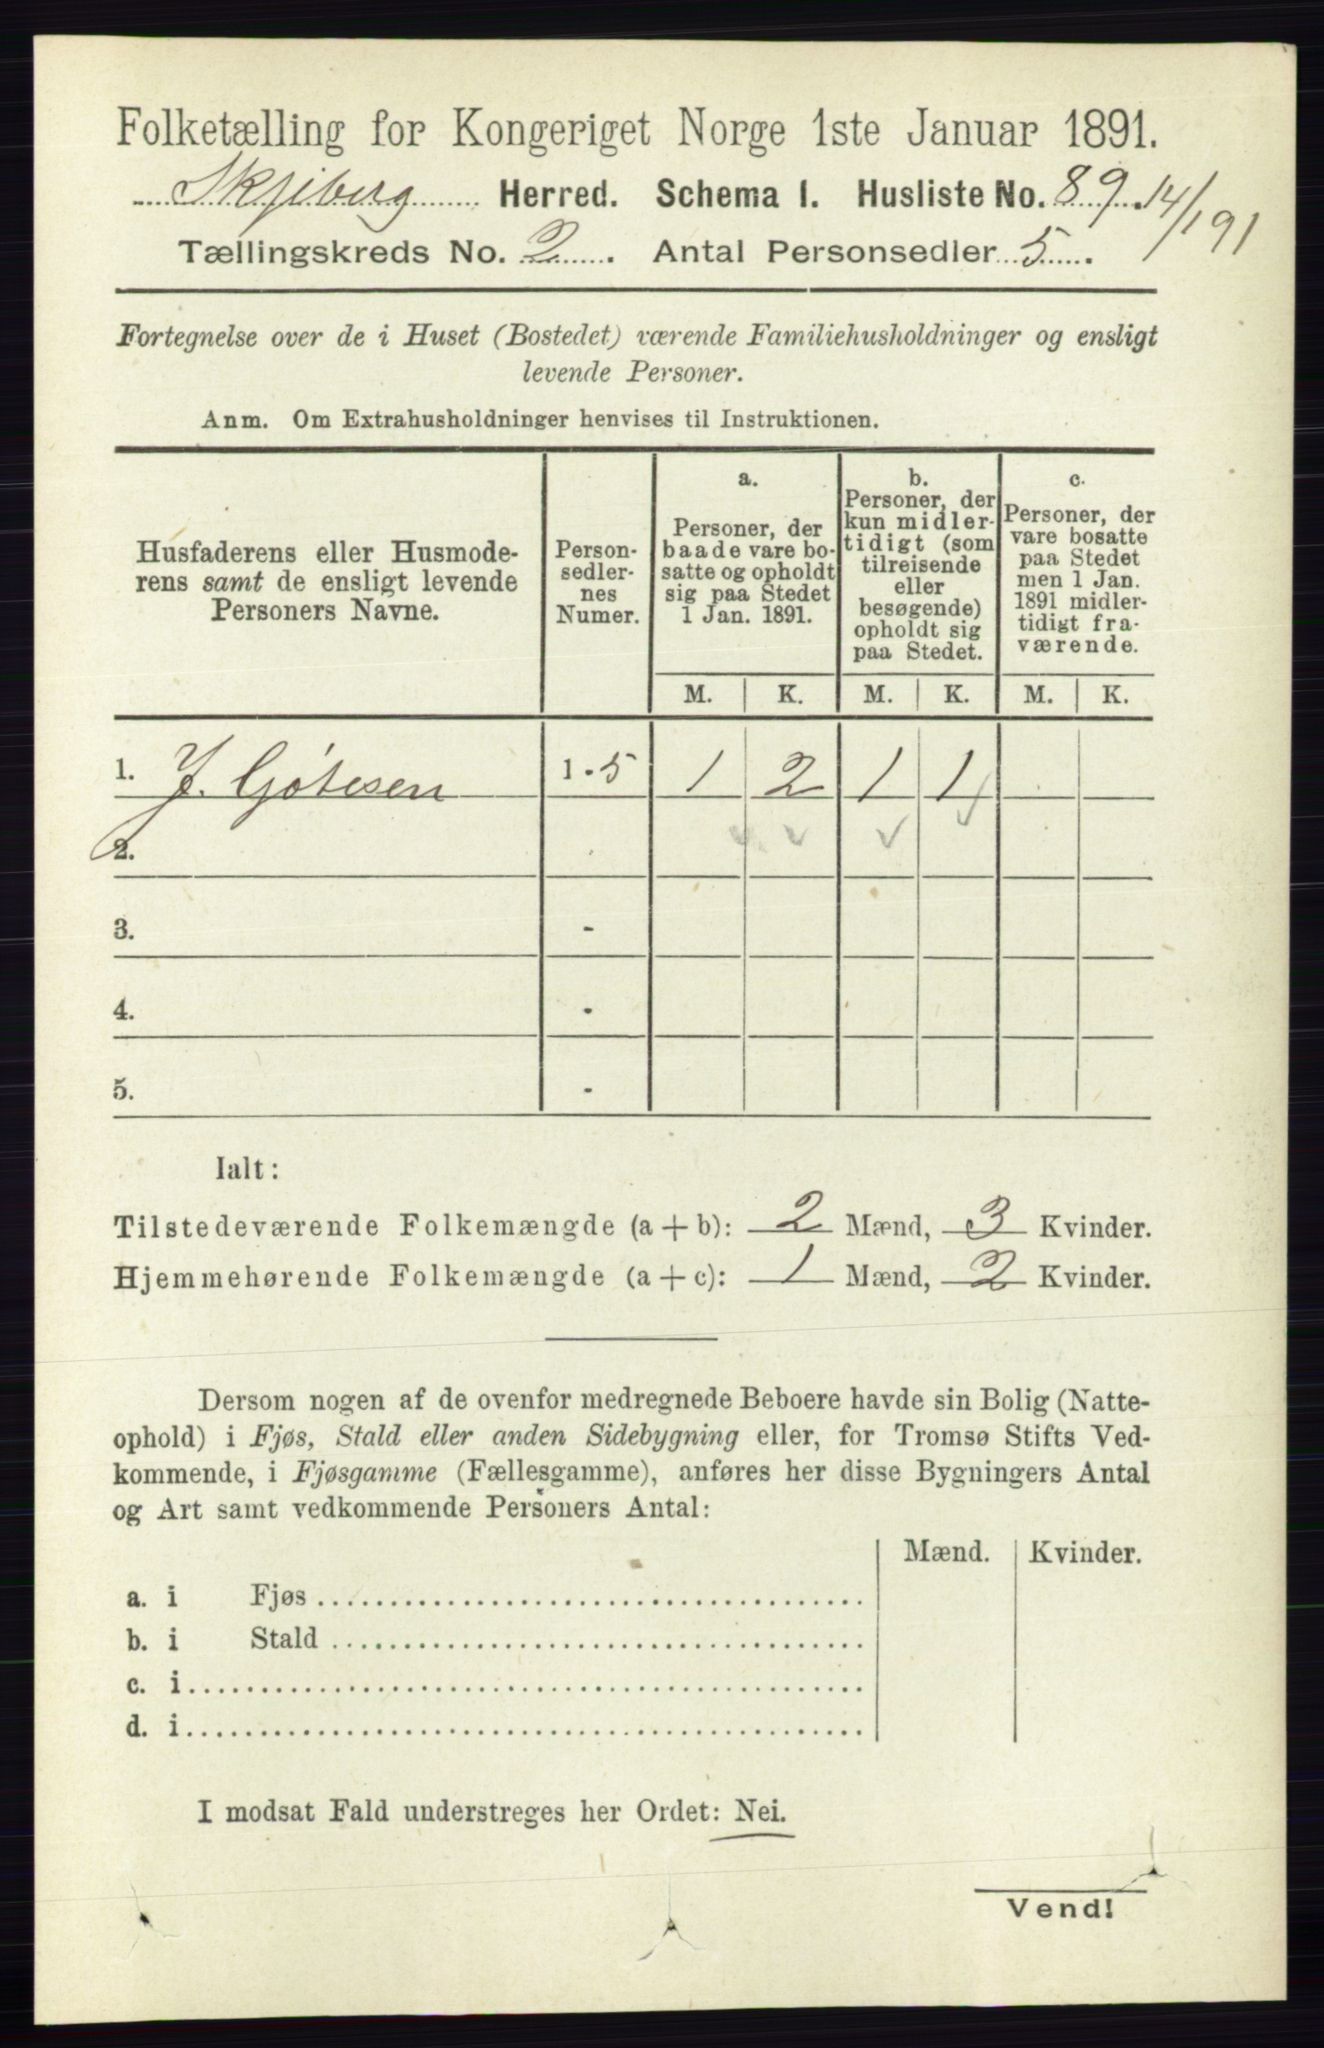 Folketælling for Kongeriget Norge 1ste Januar 1891.
Skjeberg Herred. Schema I. Husliste No. 89. 14/191
Tællingskreds No. 2. Antal Personsedler 5.
Fortegnelse over de i Huset (Bostedet) værende Familiehusholdninger og ensligt
levende Personer.
Anm. Om Extrahusholdninger henvises til Instruktionen.
Husfaderens eller Husmode-
rens samt de ensligt levende
Personers Navne.
Person-
sedler-
nes
Numer.
a.
Personer, der
baade vare bo-
satte og opholdt
sig paa Stedet
1 Jan. 1891.
b.
Personer, der
kun midler-
tidigt (som
tilreisende
eller
besøgende)
opholdt sig
paa Stedet.
c.
Personer, der
vare bosatte
paa Stedet
men 1 Jan.
1891 midler-
tidigt fra-
værende.
M. K. M. K. M. K.
1. J. Götesen 1-5 1 2 1 1
2.
3. -
4. -
5. -
Ialt:
Tilstedeværende Folkemængde (a + b): 2 Mænd, 3 Kvinder.
Hjemmehørende Folkemængde (a + c): 1 Mænd, 2 Kvinder.
Dersom nogen af de ovenfor medregnede Beboere havde sin Bolig (Natte-
ophold) i Fjøs, Stald eller anden Sidebygning eller, for Tromsø Stifts Ved-
kommende, i Fjøsgamme (Fællesgamme), anføres her disse Bygningers Antal
og Art samt vedkommende Personers Antal:
Mænd. Kvinder.
a. i Fjøs
b. i Stald
c. i
d. i
I modsat Fald understreges her Ordet: Nei.
Vend!